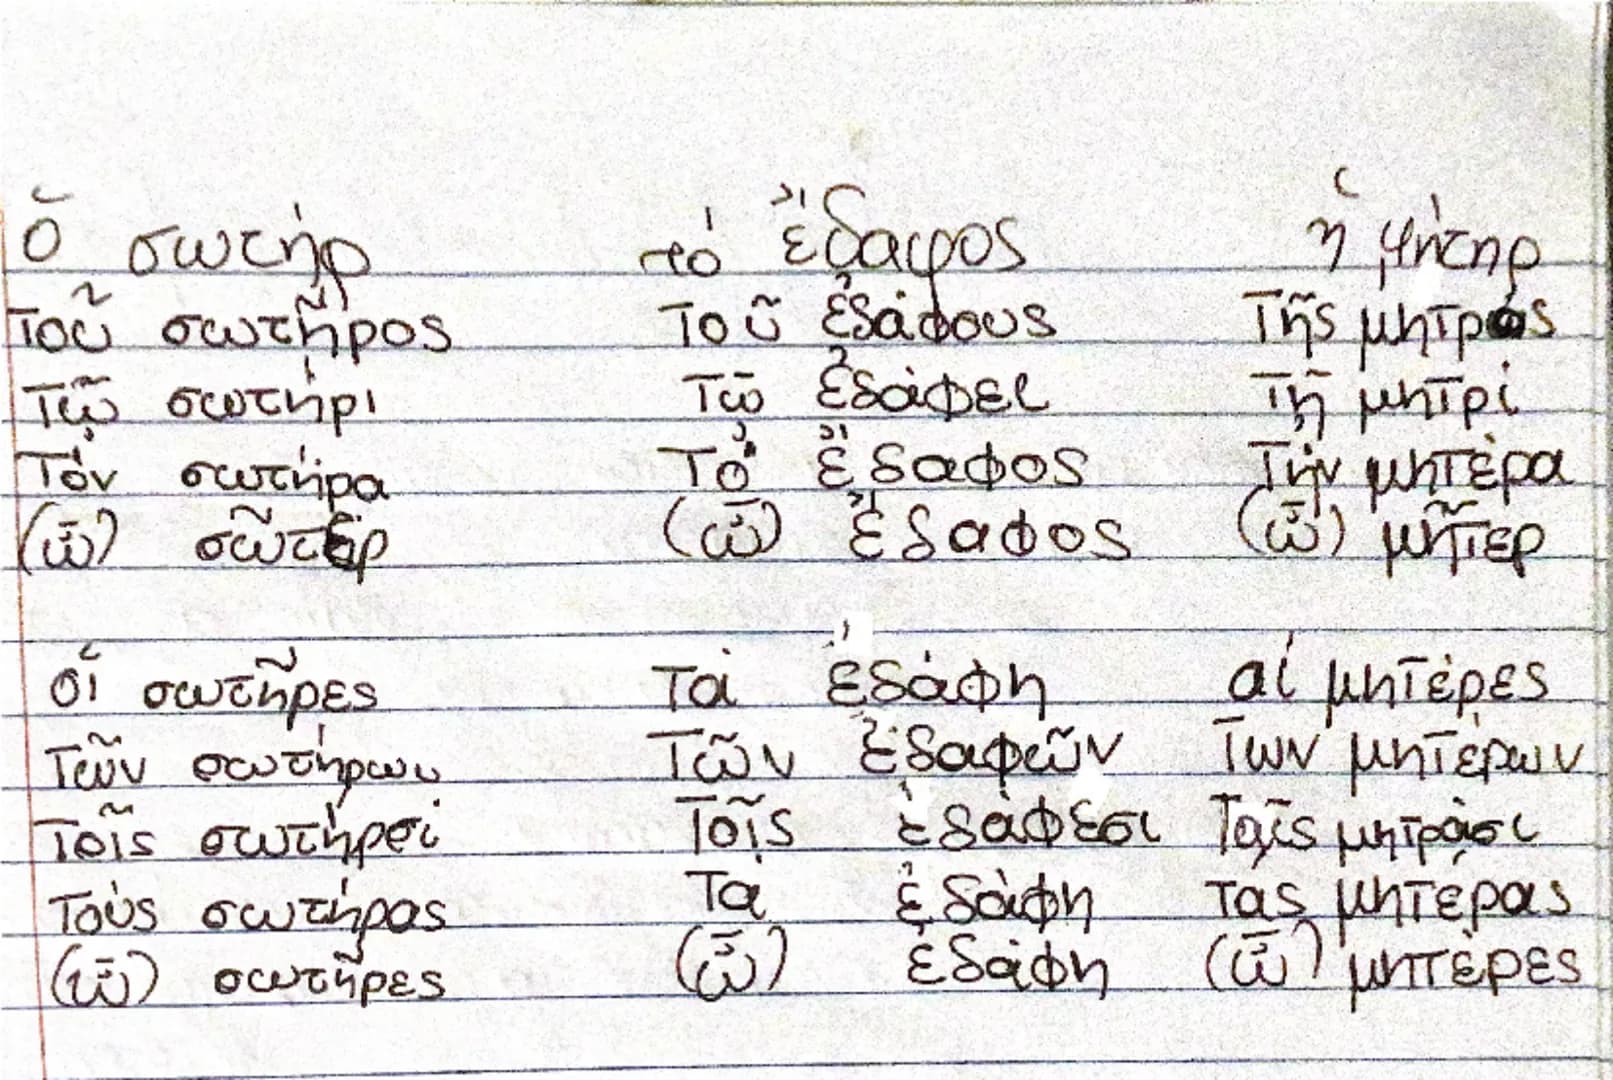 ὁ σωτήρ τό ἔδαφος ἡ μήτηρ
Τοῦ σωτῆρος Τοῦ ἐδάφους Τῆς μητρός
Τῷ σωτήρι Τῶ ἐδάφει Τῇ μητρί
Τόν σωτήρα Τό ἔδαφος Τήν μητέρα
(ὦ) σῶτερ (ὦ) ἔδαφος (ὦ) μῆτερ
οἱ σωτῆρες Τά ἐδάφη αἱ μητέρες
Τῶν σωτήρων Τῶν ἐδαφῶν Των μητέρων
Τοῖς σωτήρσί Τοῖς ἐδάφεσι Ταῖς μητράσι
Τούς σωτήρας Τά ἐδάφη τας μητέρας
(ὦ) σωτῆρες (ὦ) ἐδάφη (ὦ) μητέρες